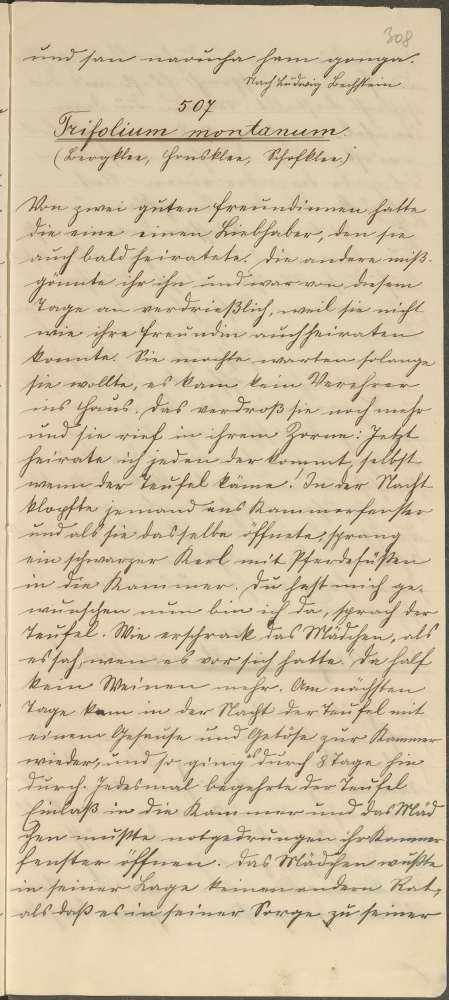 308
und san
Nach Ludwig Bechstein
507
Trifolium montanum.
(Bergklee, Honsklee, Schofklee.)
Von zwei guten Freundinnen hatte
die eine einen Liebhaber, den sie
auch bald heiratete. Die andere miß-
gönnte ihr ihn und war von diesem
Tage an verdrießlich, weil sie nicht
wie ihre Freundin auch heiraten
konnte. Sie mochte warten solange
sie wollte, es kam kein Verehrer
ins Haus. Das verdroß sie noch mehr
und sie rief in ihrem Zorne: Jetzt
heirate ich jeden der kommt, selbst
wenn der Teufel käme. In der Nacht
klopfte jemand ans Kammerfenster
und als sie dasselbe öffnete, sprang
ein schwarzer Kerl mit Pferdefüßen
in die Kammer. Du hast mich ge-
wunschen nun bin ich da, sprach der
Teufel. Wie erschrack das Mädchen, als
es sah, wen es vor sich hatte. Da half
kein Weinen mehr. Am nächsten
Tage kam in der Nacht der Teufel mit
einem Gesause und Getöse zur Kammer
wieder, und so ging es durch 8 Tage hin
durch. Jedesmal begehrte der Teufel
Einlaß in die Kammer und das Mäd
chen mußte notgedrungen ihr Kammer
fenster öffnen. Das Mädchen wußte
in seiner Lage keinen andern Rat,
als daß es in seiner Sorge zu seiner